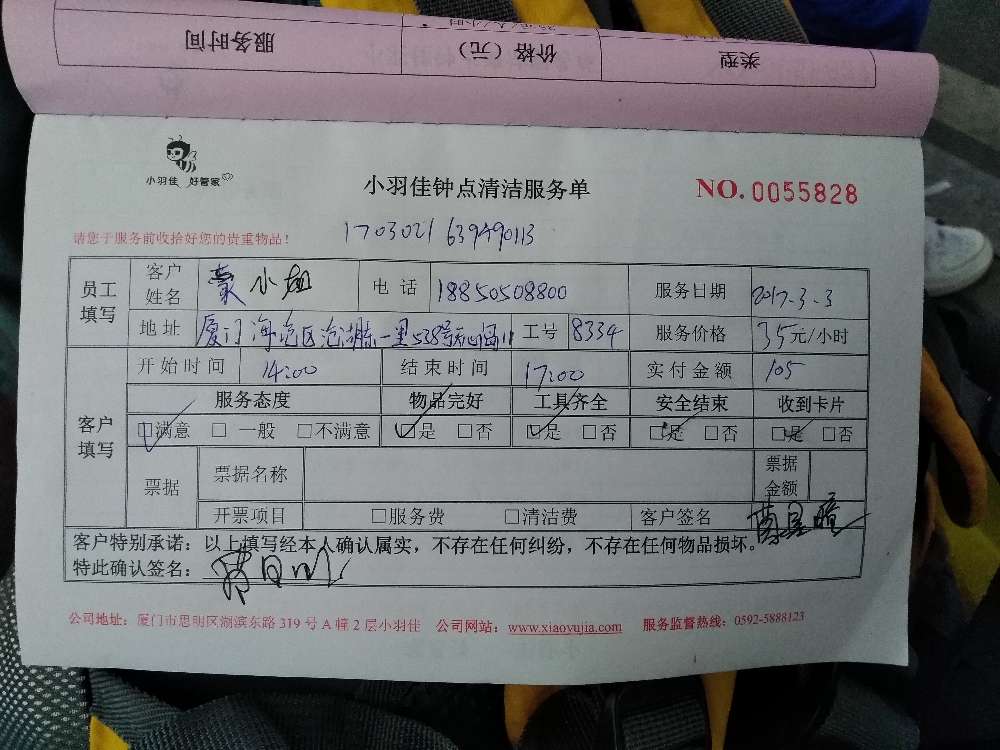 服务时间 价格（元） 类型
小羽佳 好管家
小羽佳钟点清洁服务单
NO. 0055828
请您于服务前收拾好您的贵重物品！
1703021 639490113
员工填写 客户姓名 蒙小姐 电话 18850508800 服务日期 2017-3-3
地址 厦门海沧区沧湖东一里528号 工号 8334 服务价格 35元/小时
客户填写 开始时间 14:00 结束时间 17:00 实付金额 105
服务态度 物品完好 工具齐全 安全结束 收到卡片
☑满意 □一般 □不满意 ☑是 □否 ☑是 □否 ☑是 □否 ☑是 □否
票据 票据名称 票据金额
开票项目 □服务费 □清洁费 客户签名
客户特别承诺：以上填写经本人确认属实，不存在任何纠纷，不存在任何物品损坏。
特此确认签名：
公司地址：厦门市思明区湖滨东路319号A幢2层小羽佳 公司网站：www.xiaoyujia.com 服务监督热线：0592-5888123